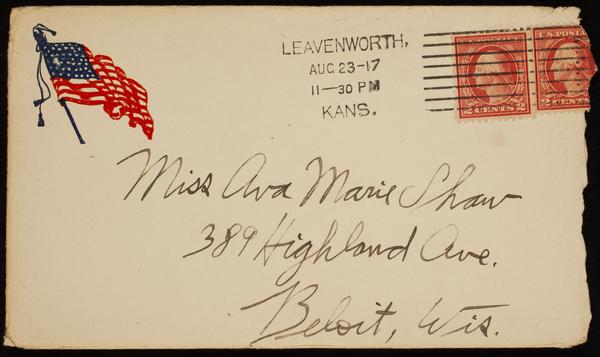 LEAVENWORTH,
AUG 23-17
11-30 PM
KANS.
U.S. POSTAGE
2 CENTS 2
2 CENTS
Miss Ava Marie Shaw
389 Highland Ave.
Beloit, Wis.